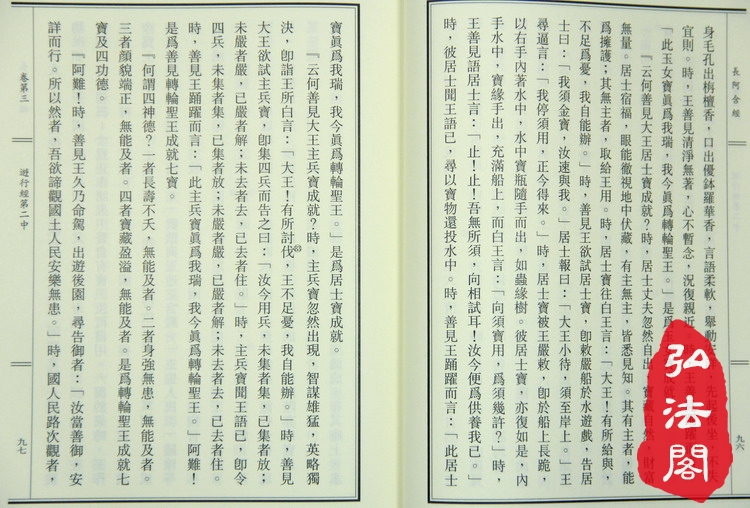 長阿含經
九六
身毛孔出栴檀香，口出優鉢羅華香，言語柔軟，舉動
宜則。時，王善見清淨無著，心不暫念，況復親近
「此玉女寶眞爲我瑞，我今眞爲轉輪聖王。」是爲
『云何善見大王居士寶成就？時，居士丈夫忽然自出，寶藏自然，財富
無量。居士宿福，眼能徹視地中伏藏，有主無主，皆悉見知。其有主者，能
爲擁護；其無主者，取給王用。時，居士寶往白王言：「大王！有所給與，
不足爲憂，我自能辦。」時，善見王欲試居士寶，卽敕嚴船於水遊戲，告居
士曰：「我須金寶，汝速與我。」居士報曰：「大王小待，須至岸上。」王
尋逼言：「我停須用，正今得來。」時，居士寶被王嚴敕，卽於船上長跪，
以右手內著水中，水中寶瓶隨手而出，如蟲緣樹。彼居士寶，亦復如是，內
手水中，寶緣手出，充滿船上，而白王言：「向須寶用，爲須幾許？」時，
王善見語居士言：「止！止！吾無所須，向相試耳！汝今便爲供養我已。」
時，彼居士聞王語已，尋以寶物還投水中。時，善見王踊躍而言：「此居士
寶眞爲我瑞，我今眞爲轉輪聖王。」是爲居士寶成就。
『云何善見大王主兵寶成就？時，主兵寶忽然出現，智謀雄猛，英略獨
決，卽詣王所白言：「大王！有所討伐，王不足憂，我自能辦。」時，善見
大王欲試主兵寶，卽集四兵而告之曰：「汝今用兵，未集者集，已集者放；
未嚴者嚴，已嚴者解；未去者去，已去者住。」時，主兵寶聞王語已，卽令
四兵，未集者集，已集者放；未嚴者嚴，已嚴者解；未去者去，已去者住。
時，善見王踊躍而言：「此主兵寶眞爲我瑞，我今眞爲轉輪聖王。」阿難！
是爲善見轉輪聖王成就七寶。
『何謂四神德？一者長壽不夭，無能及者。二者身強無患，無能及者。
三者顏貌端正，無能及者。四者寶藏盈溢，無能及者。是爲轉輪聖王成就七
寶及四功德。
『阿難！時，善見王久乃命駕，出遊後園，尋告御者：「汝當善御，安
詳而行。所以然者，吾欲諦觀國土人民安樂無患。」時，國人民路次觀者，
卷第三
遊行經第二中
九七
弘法閣